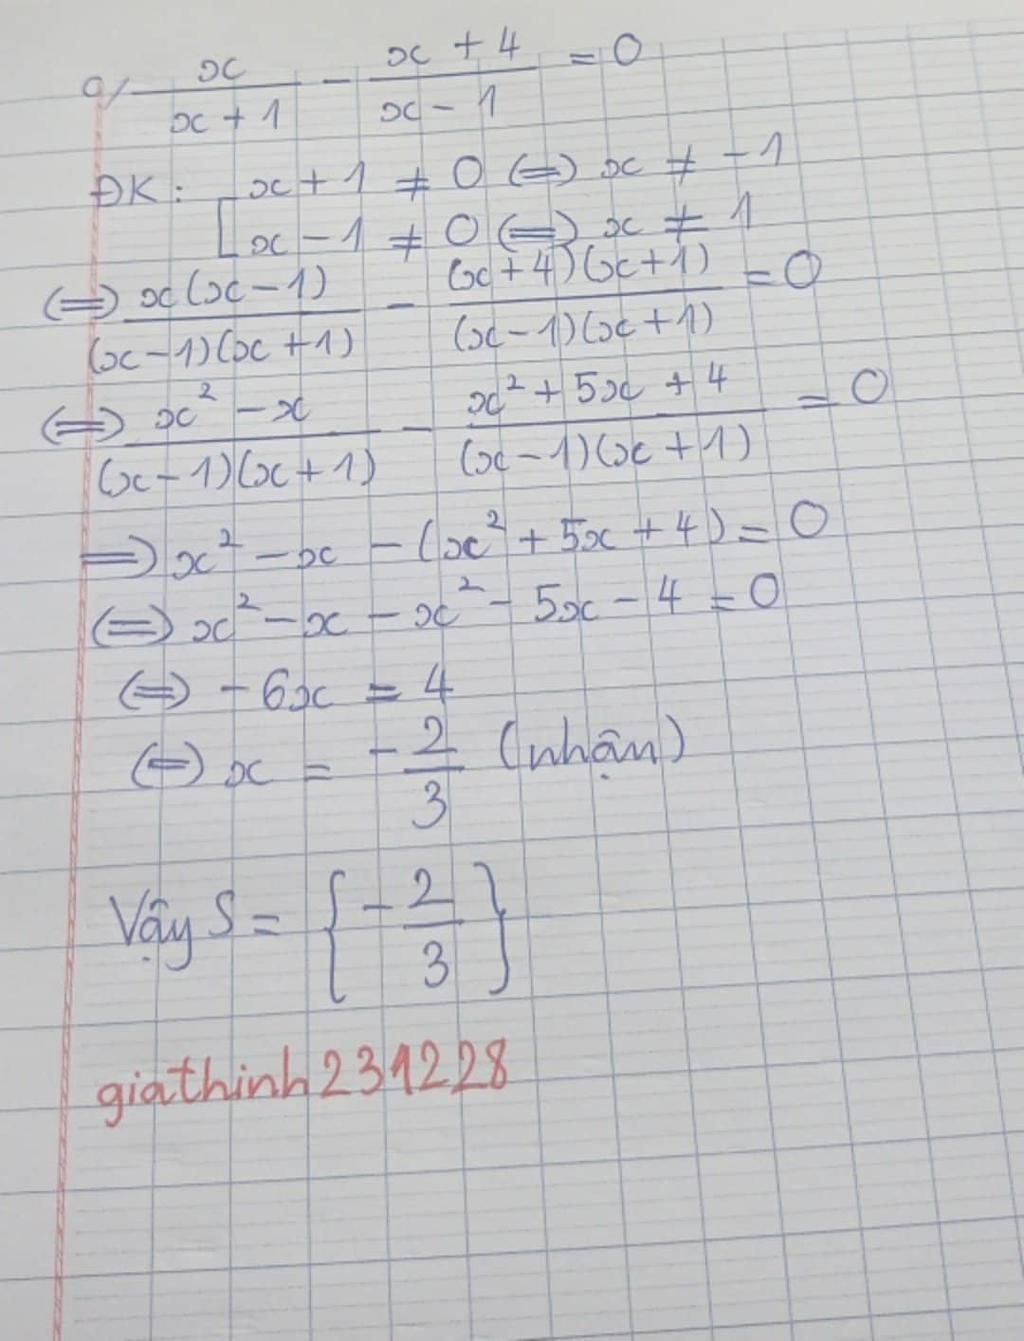 a/ x/(x + 1) - (x + 4)/(x - 1) = 0
ĐK: [ x + 1 ≠ 0 (=) x ≠ -1
x - 1 ≠ 0 (=) x ≠ 1
(=) x(x - 1)/((x - 1)(x + 1)) - (x + 4)(x + 1)/((x - 1)(x + 1)) = 0
(=) (x² - x)/((x - 1)(x + 1)) - (x² + 5x + 4)/((x - 1)(x + 1)) = 0
=) x² - x - (x² + 5x + 4) = 0
(=) x² - x - x² - 5x - 4 = 0
(=) -6x = 4
(=) x = -2/3 (nhận)
Vậy S = {-2/3}
giathinh231228